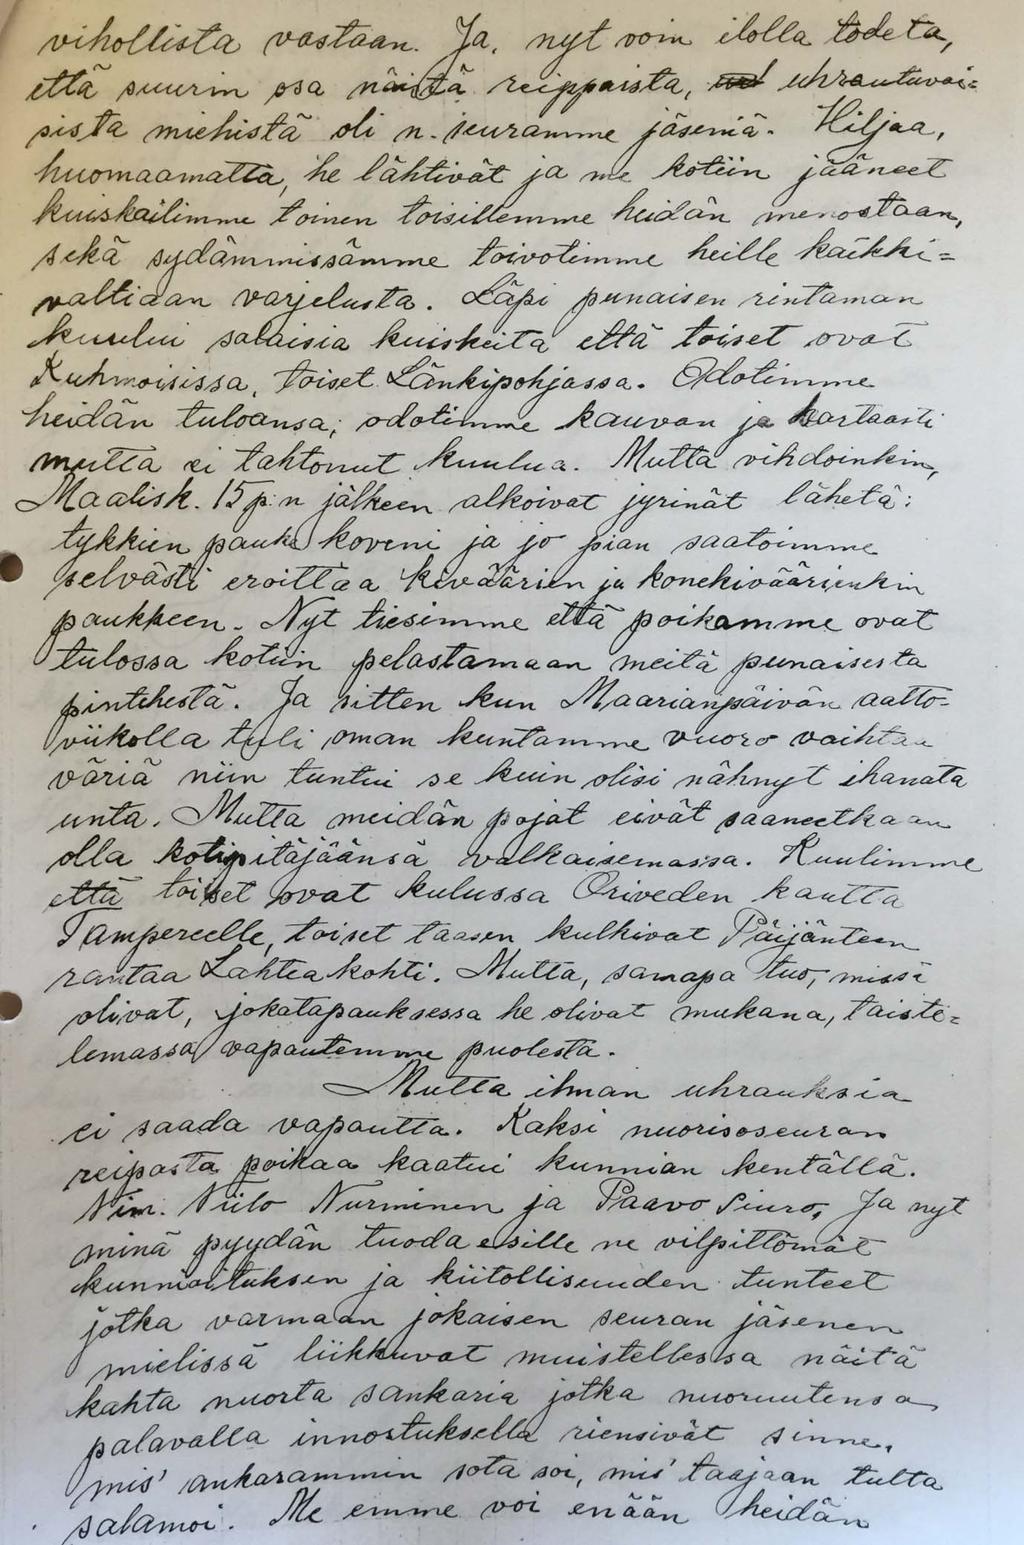 vihollista vastaan. Ja, nyt voin ilolla todeta,
että suurin osa näistä reippaista, uhrautuvai=
sista miehistä oli n. seuramme jäseniä. Hiljaa,
huomaamatta, he lähtivät ja me kotiin jääneet
kuiskailimme toinen toisillemme heidän menostaan,
sekä sydämmissämme toivotimme heille kaikki=
valtiaan varjelusta. Läpi punaisen rintaman
kuului salaisia kuiskeita että toiset ovat
Kuhmoisissa, toiset Länkipohjassa. Odotimme
heidän tuloansa; odotimme kauvan ja hartaasti
mutta ei tahtonut kuulua. Mutta vihdoinkin,
Maalisk. 15 p:n jälkeen alkoivat jyrinät lähetä:
tykkien pauke koveni ja jo pian saatoimme
selvästi eroittaa kiväärien ja konekiväärienkin
paukkeen. Nyt tiesimme että poikamme ovat
tulossa kotiin pelastamaan meitä punaisesta
pintehestä. Ja sitten kun Maarianpäivän aatto=
viikolla tuli oman kuntamme vuoro vaihtaa
väriä niin tuntui se kuin olisi nähnyt ihanata
unta. Mutta meidän pojat eivät saaneetkaan
olla kotipitäjäänsä valkaisemassa. Kuulimme
että toiset ovat kulussa Oriveden kautta
Tampereelle, toiset taasen kulkivat Päijänteen
rantaa Lahtea kohti. Mutta, samapa tuo, missä
olivat, jokatapauksessa he olivat mukana, taiste=
lemassa vapautemme puolesta.
Mutta ilman uhrauksia
ei saada vapautta. Kaksi nuorisoseuran
reipasta poikaa kaatui kunnian kentällä.
Nim. Niilo Nurminen ja Paavo Siuro, Ja nyt
minä pyydän tuoda esille ne vilpittömät
kunnioituksen ja kiitollisuuden tunteet
jotka varmaan jokaisen seuran jäsenen
mielissä liikkuvat muistellessa näitä
kahta nuorta sankaria jotka nuoruutensa
palavalla innostuksella riensivät sinne,
mis' ankarammin sota soi, mis' taajaan tulta
salamoi. Me emme voi enään heidän